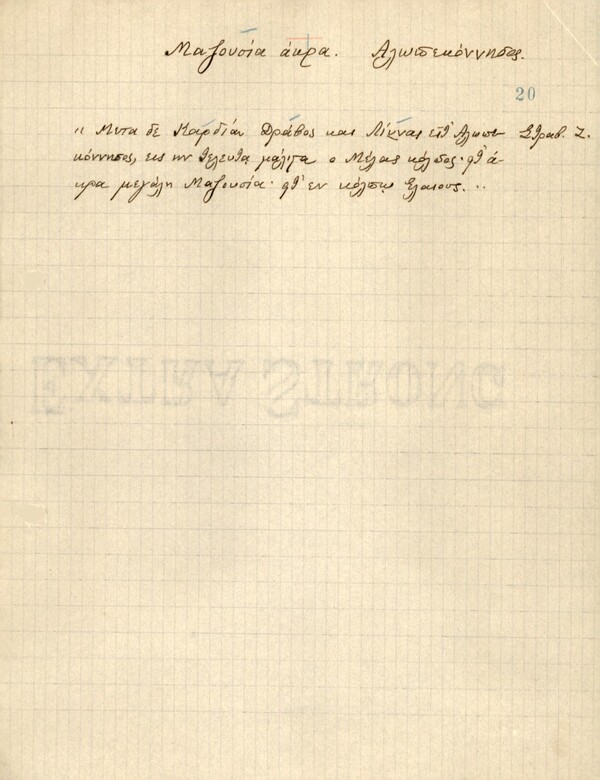 Μαζουσία άκρα. Αλωπεκόννησος.
20
„ Μετα δε Καρδίαν Δράβος και Λίμναι ειτ' Αλωπε- Στραβ. Ζ.
κόννησος, εις ην τελευτα μάλιστα ο Μέλας κόλπος· ειτ' ά-
κρα μεγάλη Μαζουσία· ειτ' εν κόλπω Ελαιους. ..
EXTRA STRONG